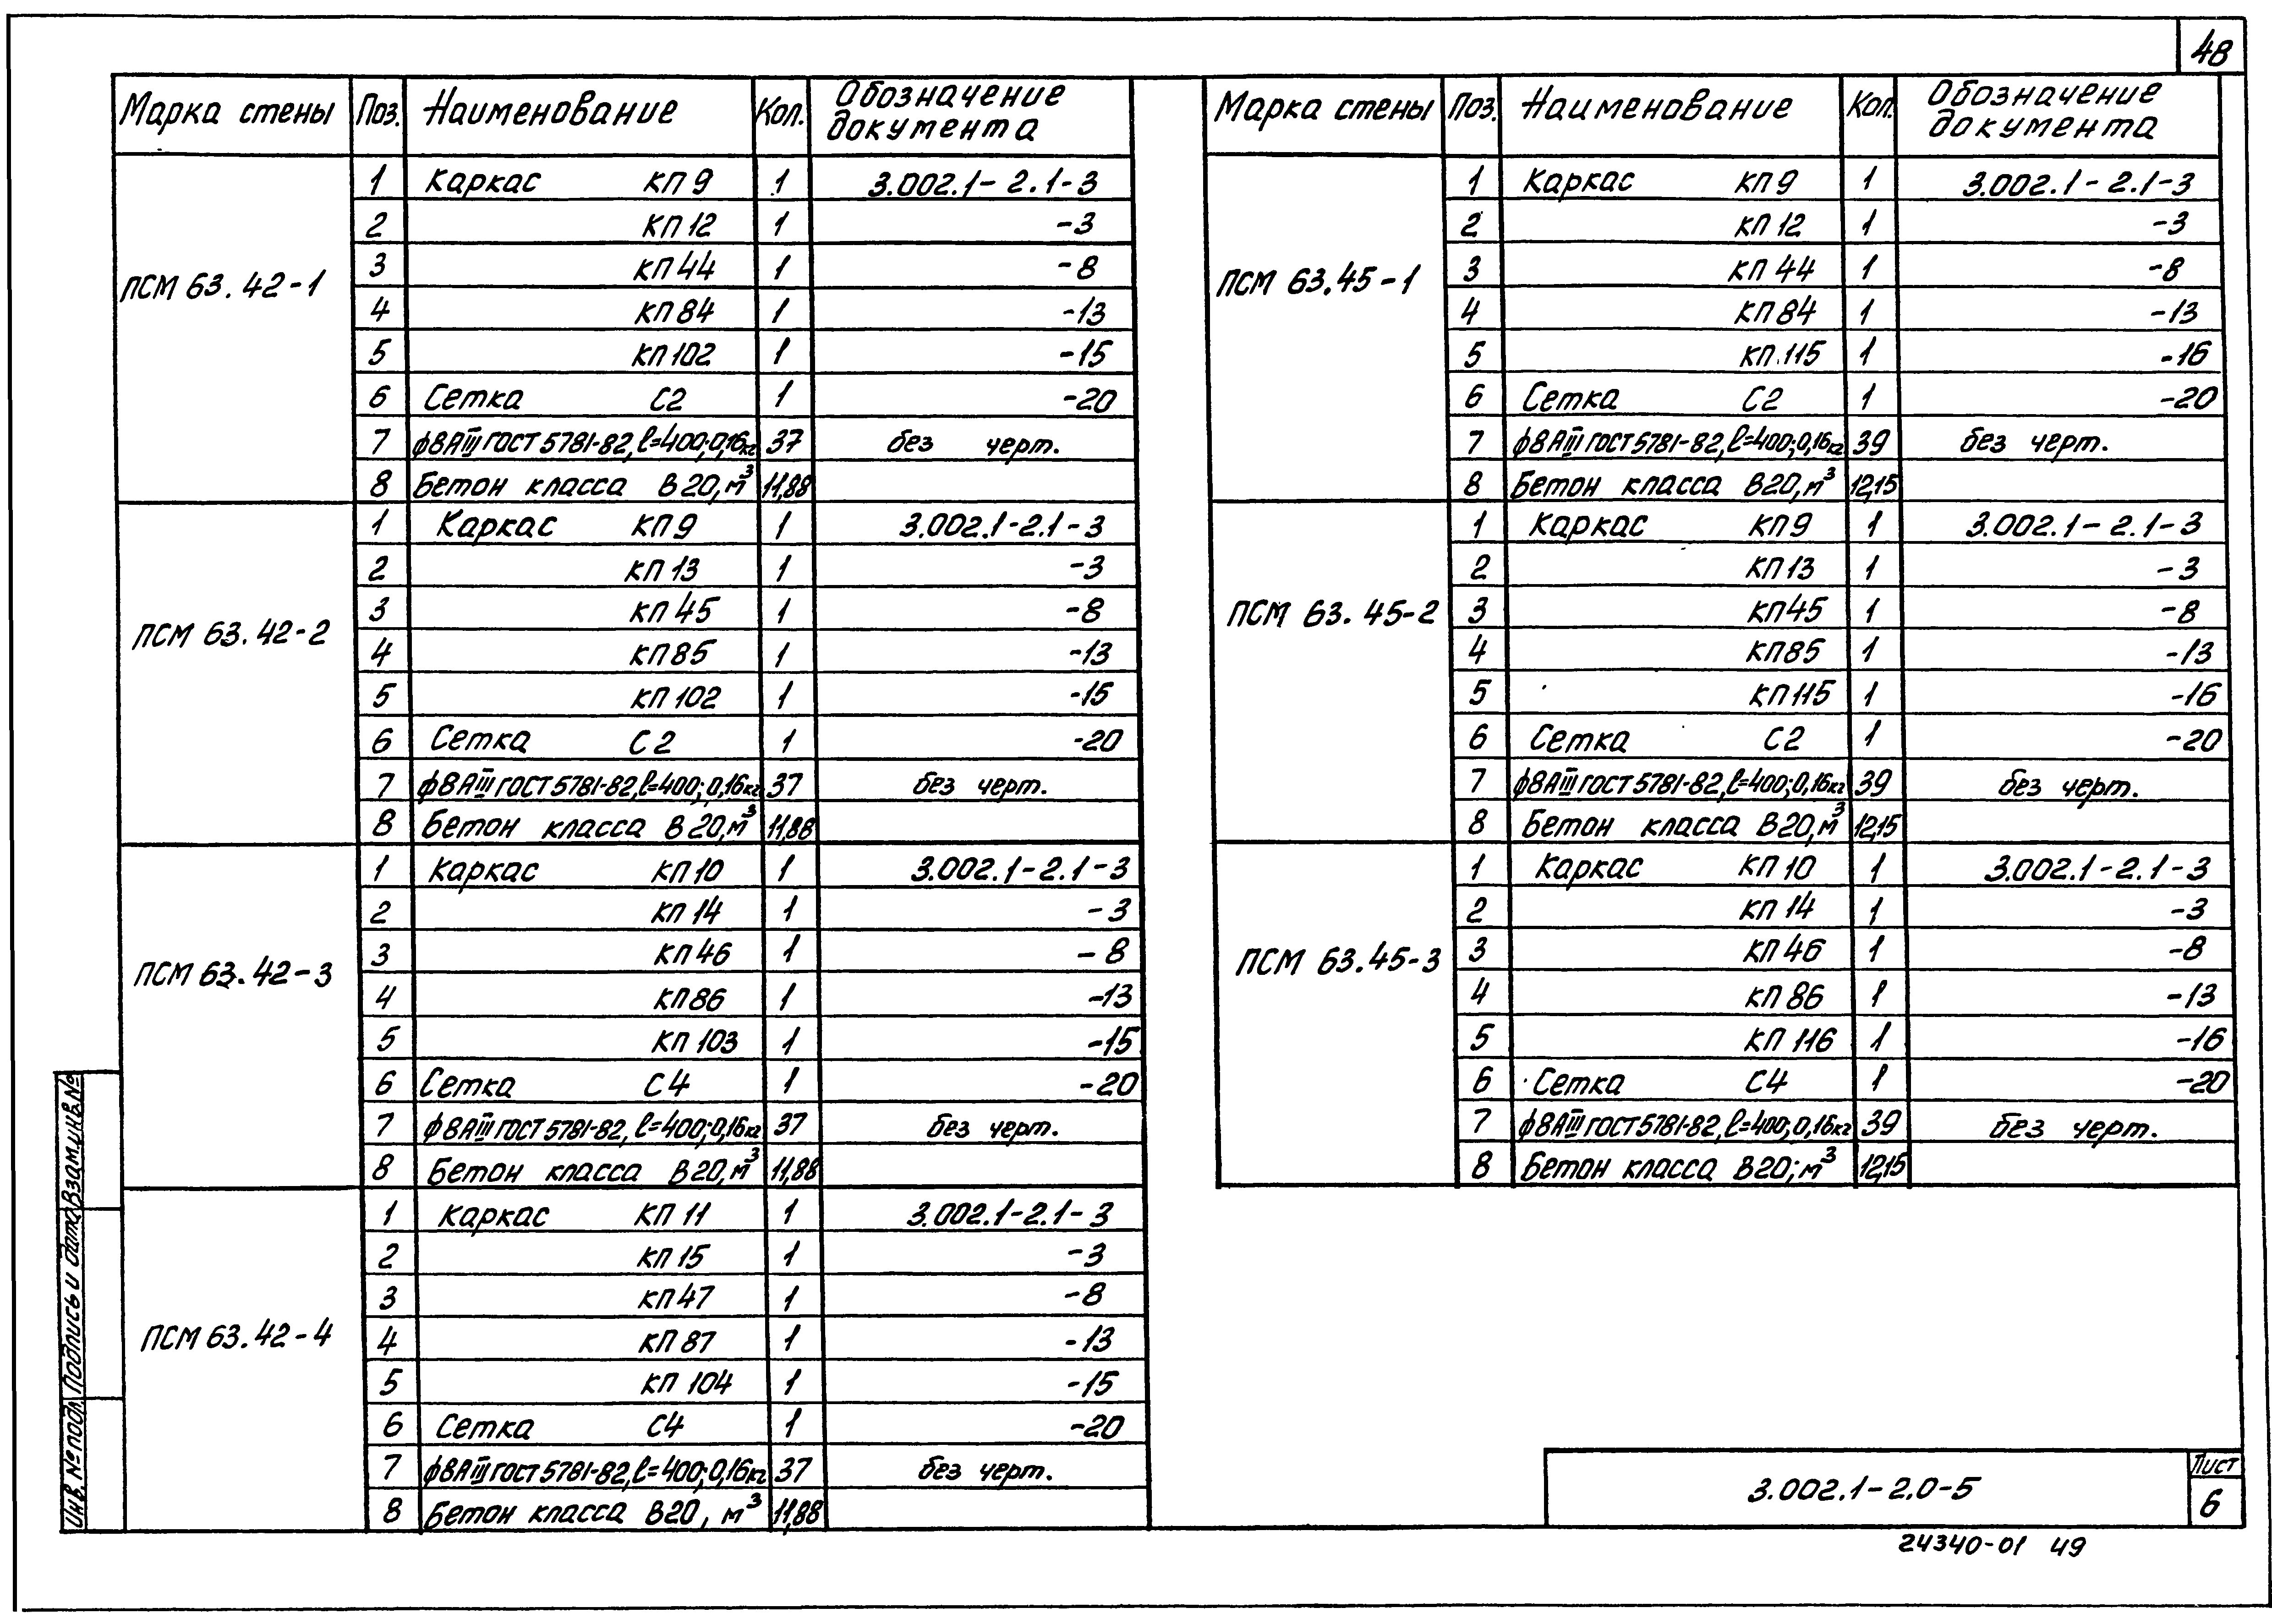 48
Марка стены Поз. Наименование Кол. Обозначение документа
ПСМ 63.42-1
1 Каркас КП9 1 3.002.1-2.1-3
2 КП12 1 -3
3 КП44 1 -8
4 КП84 1 -13
5 КП102 1 -15
6 Сетка С2 1 -20
7 ф8АIII ГОСТ 5781-82, ℓ=400; 0,16кг 37 без черт.
8 Бетон класса В20, м³ 11,88
ПСМ 63.42-2
1 Каркас КП9 1 3.002.1-2.1-3
2 КП13 1 -3
3 КП45 1 -8
4 КП85 1 -13
5 КП102 1 -15
6 Сетка С2 1 -20
7 ф8АIII ГОСТ 5781-82, ℓ=400; 0,16кг 37 без черт.
8 Бетон класса В20, м³ 11,88
ПСМ 63.42-3
1 Каркас КП10 1 3.002.1-2.1-3
2 КП14 1 -3
3 КП46 1 -8
4 КП86 1 -13
5 КП103 1 -15
6 Сетка С4 1 -20
7 ф8АIII ГОСТ 5781-82, ℓ=400; 0,16кг 37 без черт.
8 Бетон класса В20, м³ 11,88
ПСМ 63.42-4
1 Каркас КП11 1 3.002.1-2.1-3
2 КП15 1 -3
3 КП47 1 -8
4 КП87 1 -13
5 КП104 1 -15
6 Сетка С4 1 -20
7 ф8АIII ГОСТ 5781-82, ℓ=400; 0,16кг 37 без черт.
8 Бетон класса В20, м³ 11,88
Марка стены Поз. Наименование Кол. Обозначение документа
ПСМ 63.45-1
1 Каркас КП9 1 3.002.1-2.1-3
2 КП12 1 -3
3 КП44 1 -8
4 КП84 1 -13
5 КП115 1 -16
6 Сетка С2 1 -20
7 ф8АIII ГОСТ 5781-82, ℓ=400; 0,16кг 39 без черт.
8 Бетон класса В20, м³ 12,15
ПСМ 63.45-2
1 Каркас КП9 1 3.002.1-2.1-3
2 КП13 1 -3
3 КП45 1 -8
4 КП85 1 -13
5 КП115 1 -16
6 Сетка С2 1 -20
7 ф8АIII ГОСТ 5781-82, ℓ=400; 0,16кг 39 без черт.
8 Бетон класса В20, м³ 12,15
ПСМ 63.45-3
1 Каркас КП10 1 3.002.1-2.1-3
2 КП14 1 -3
3 КП46 1 -8
4 КП86 1 -13
5 КП116 1 -16
6 Сетка С4 1 -20
7 ф8АIII ГОСТ 5781-82, ℓ=400; 0,16кг 39 без черт.
8 Бетон класса В20; м³ 12,15
Инв. № подл. Подпись и дата Взам.инв.№
3.002.1-2.0-5
Лист
6
24340-01 49